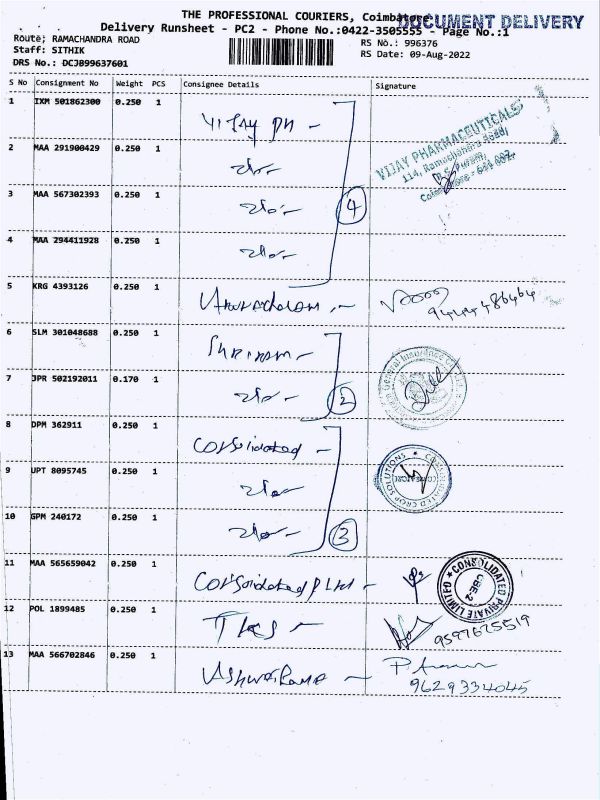 THE PROFESSIONAL COURIERS, Coimbatore
DOCUMENT DELIVERY
Delivery Runsheet - PC2 - Phone No.:0422-3505555 - Page No.:1
Route; RAMACHANDRA ROAD
RS No.: 996376
Staff: SITHIK
RS Date: 09-Aug-2022
DRS No.: DCJ899637601
S No Consignment No Weight PCS Consignee Details Signature
1 IXM 501862300 0.250 1
VIJAY PH
VIJAY PHARMACEUTICALS
114, Ramachandra Road,
R.S. Puram,
Coimbatore - 641 002.
2 MAA 291900429 0.250 1
3 MAA 567302393 0.250 1
4
4 MAA 294411928 0.250 1
5 KRG 4393126 0.250 1
9444486464
6 SLM 301048688 0.250 1
Shriram
General Insurance Co
7 JPR 502192011 0.170 1
2
8 DPM 362911 0.250 1
Consolidated
CROP SOLUTIONS
9 UPT 8095745 0.250 1
10 GPM 240172 0.250 1
3
11 MAA 565659042 0.250 1
Consolidated P Ltd
CONSOLIDATED PRIVATE LIMITED
CBE-2
12 POL 1899485 0.250 1
9597675519
13 MAA 566702846 0.250 1
9629334045